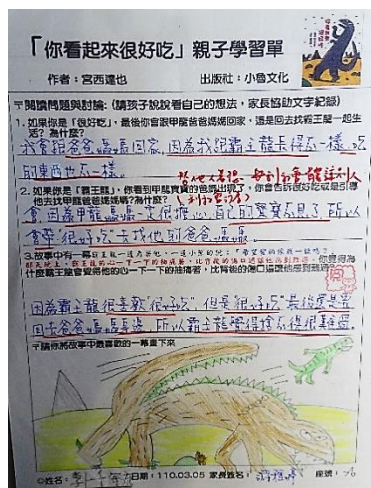 「你看起來很好吃」親子學習單
作者：宮西達也 出版社：小魯文化
〒閱讀問題與討論：(請孩子說說看自己的想法，家長協助文字紀錄)
1. 如果你是「很好吃」，最後你會跟甲龍爸爸媽媽回家，還是回去找霸王龍一起生
活？為什麼？
我會跟爸爸媽媽回家，因為我跟霸王龍長得不一樣，吃
的東西也不一樣。
2. 如果你是「霸王龍」，你看到甲龍寶寶的爸媽出現了，你會告訴很好吃或是引導
他去找甲龍爸爸媽媽嗎？為什麼？
會，因為甲龍媽媽一定很擔心自己的寶寶不見了，所以
會帶"很好吃"去找他的爸爸媽媽。
3. 故事中有一幕
你覺得為
什麼霸王龍會覺得他的心一下一下的抽痛著，比背後的傷口還讓他感到難過
因為霸王龍很喜歡"很好吃"，但是"很好吃"最後要是
回去爸爸媽媽身邊，所以霸王龍覺得捨不得很難過。
〒請你將故事中最喜歡的一幕畫下來
◎姓名： 日期：110.03.05 家長姓名： 座號：